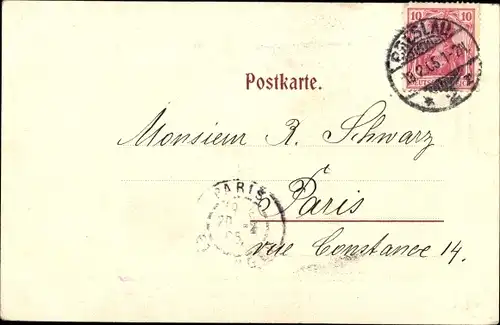 10 10
BRESLAU
Postkarte.
Monsieur R. Schwarz
PARIS
Paris
rue Constance 14.